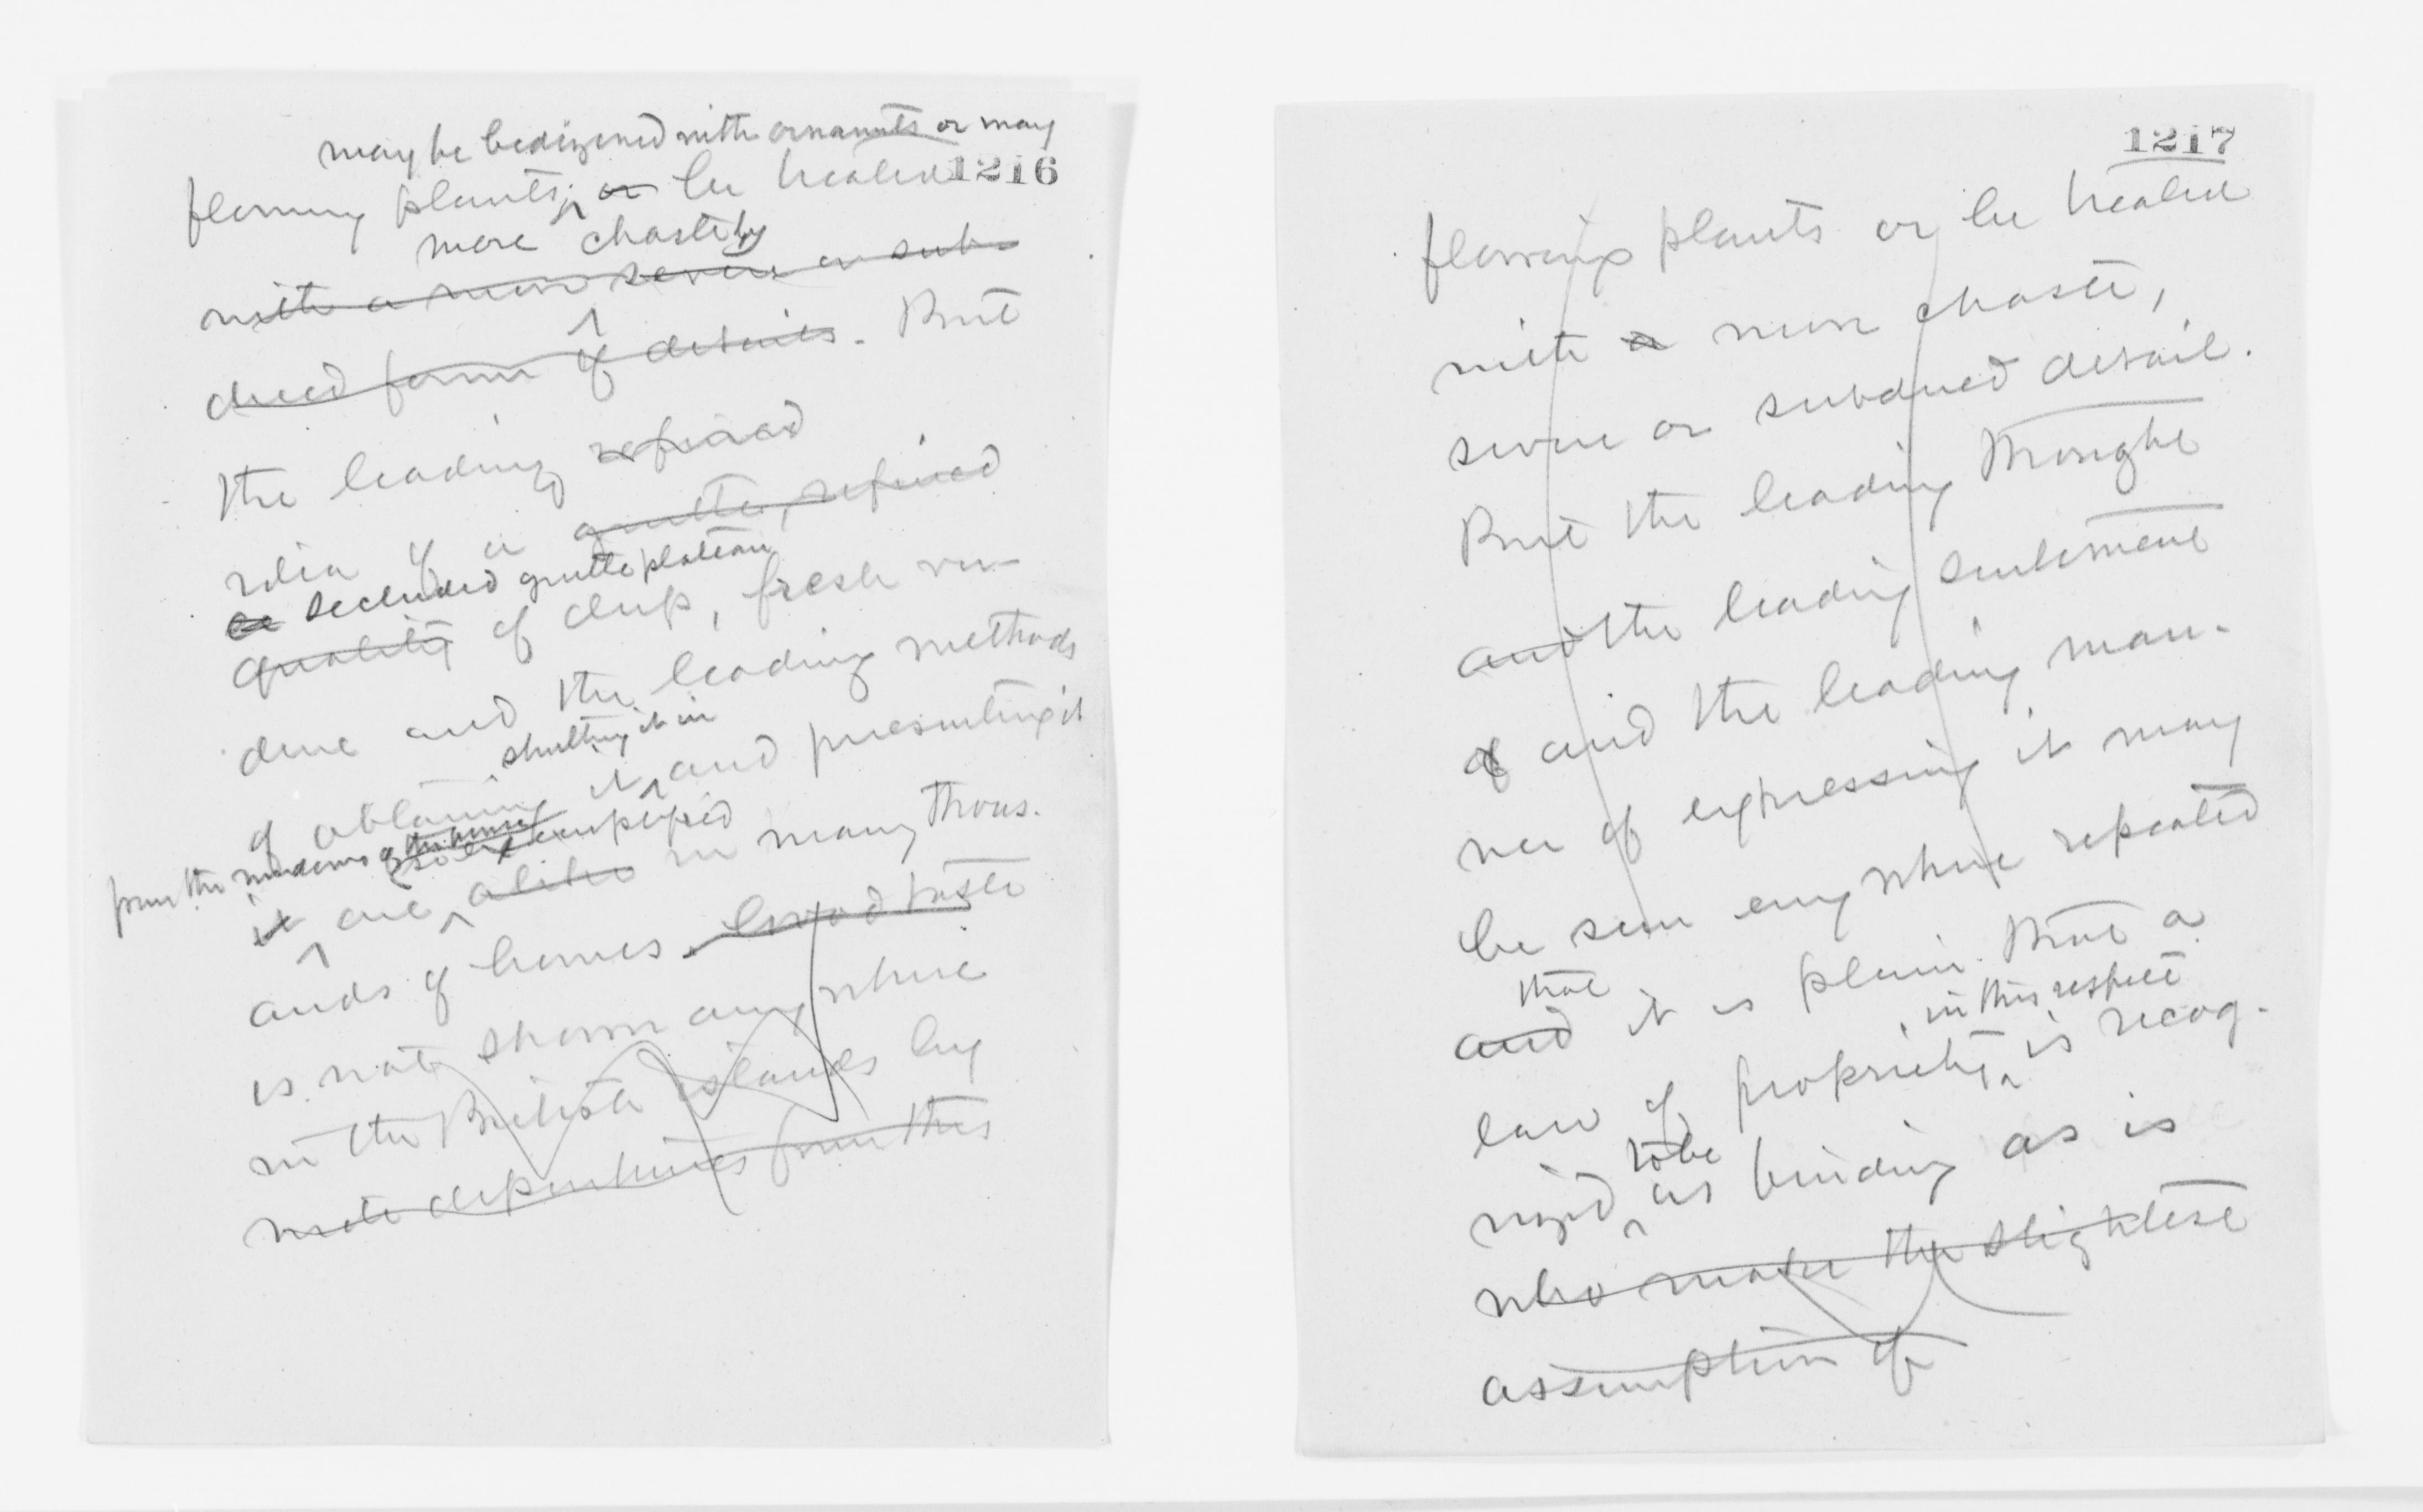 may be bedizened with ornaments or may
1216
flowing plants, or be treated
more chastely
with a more severe or sub-
dued form of details. But
the leading refined
idea of a quite, refined
secluded quiet plateau
quality of deep, fresh ver-
dure and the leading methods
shutting it in
of obtaining it and presenting it
from the windows of the house
so exemplified
it are alike in many thous-
ands of homes. Good taste
is not shown anywhere
in the British islands by
wide departures from this
1217
flowing plants or be treated
with a more chaste,
severe or subdued detail.
But the leading thought
and the leading sentiment
of and the leading man-
ner of expressing it may
be seen everywhere repeated
that
and it is plain that a
in this respect
law of propriety is recog-
to be
nized as binding as is
who make the slightest
assumption of